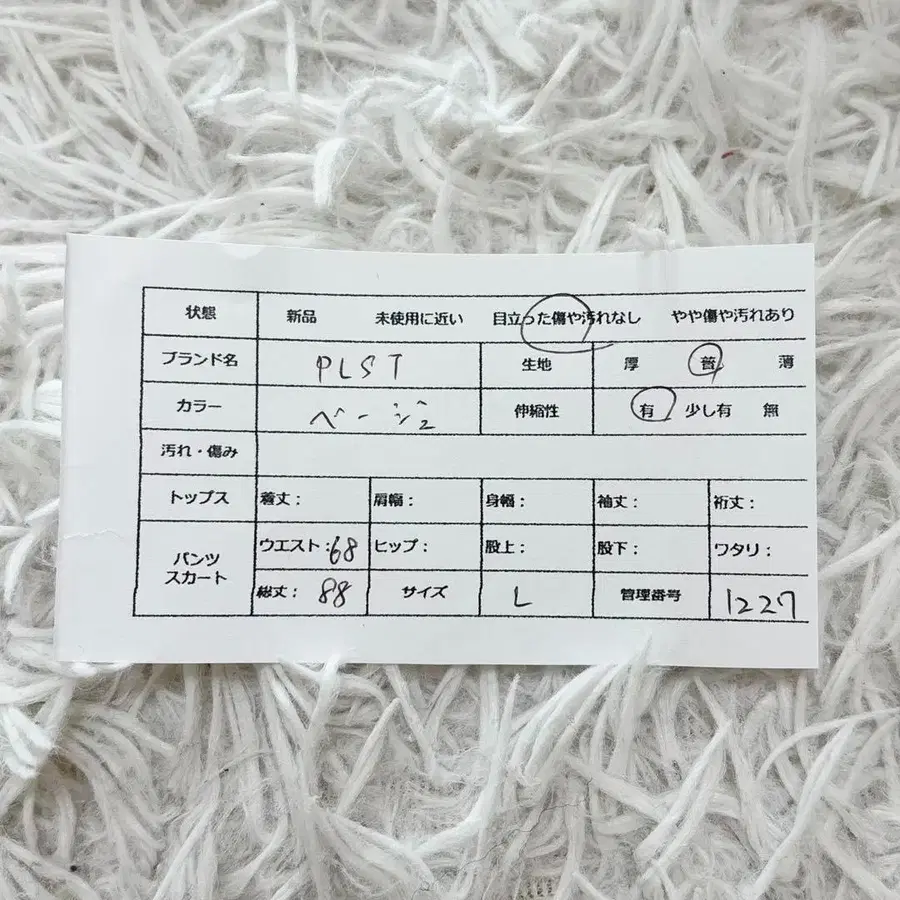 状態 新品 未使用に近い 目立った傷や汚れなし やや傷や汚れあり
ブランド名 PLST 生地 厚 普 薄
カラー ベージュ 伸縮性 有 少し有 無
汚れ・傷み
トップス 着丈： 肩幅： 身幅： 袖丈： 裄丈：
パンツ スカート ウエスト：68 ヒップ： 股上： 股下： ワタリ：
総丈： 88 サイズ L 管理番号 1227